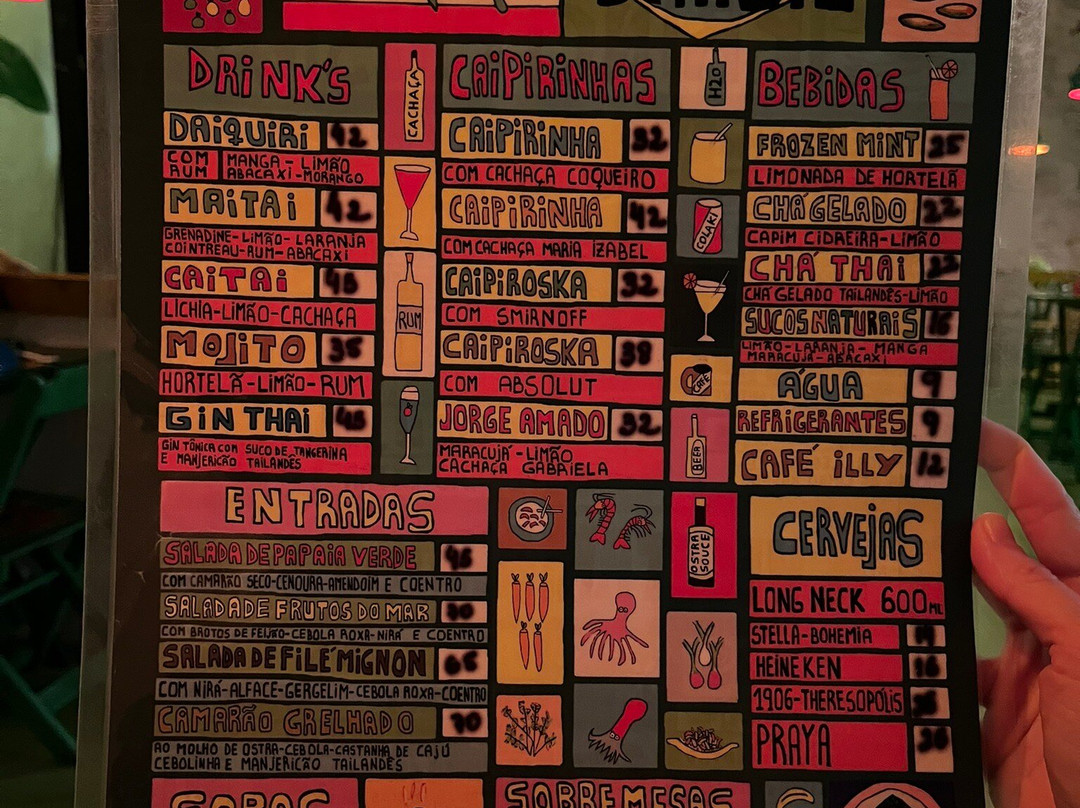 DRINK'S
DAIQUIRI 42
COM RUM
MANGA - LIMÃO
ABACAXI - MORANGO
MAITAI 42
GRENADINE - LIMÃO - LARANJA
COINTREAU - RUM - ABACAXI
CAITAI
LICHIA - LIMÃO - CACHAÇA
MOJITO 35
HORTELÃ - LIMÃO - RUM
GIN THAI
GIN TÔNICA COM SUCO DE TANGERINA
E MANJERICÃO TAILANDÊS
CACHAÇA
RUM
CAIPIRINHAS
CAIPIRINHA 32
COM CACHAÇA COQUEIRO
CAIPIRINHA 42
COM CACHAÇA MARIA IZABEL
CAIPIROSKA 32
COM SMIRNOFF
CAIPIROSKA 38
COM ABSOLUT
JORGE AMADO 32
MARACUJÁ - LIMÃO
CACHAÇA GABRIELA
H2O
COLARI
CAFÉ
BEBIDAS
FROZEN MINT 25
LIMONADA DE HORTELÃ
CHÁ GELADO 22
CAPIM CIDREIRA - LIMÃO
CHÁ THAI 22
CHÁ GELADO TAILANDÊS - LIMÃO
SUCOS NATURAIS 16
LIMÃO - LARANJA - MANGA
MARACUJÁ - ABACAXI
ÁGUA 9
REFRIGERANTES 9
CAFÉ ILLY 12
ENTRADAS
SALADA DE PAPAIA VERDE
COM CAMARÃO SECO - CENOURA - AMENDOIM E COENTRO
SALADA DE FRUTOS DO MAR
COM BROTOS DE FEIJÃO - CEBOLA ROXA - NIRÁ E COENTRO
SALADA DE FILÉ MIGNON 65
COM NIRÁ - ALFACE - GERGELIM - CEBOLA ROXA - COENTRO
CAMARÃO GRELHADO 70
AO MOLHO DE OSTRA - CEBOLA - CASTANHA DE CAJÚ
CEBOLINHA E MANJERICÃO TAILANDÊS
OSTRA SOUCE
CERVEJAS
LONG NECK 600ML
STELLA - BOHEMIA
HEINEKEN
1906 - THERESOPÓLIS
PRAYA
SOPAS
SOBREMESAS